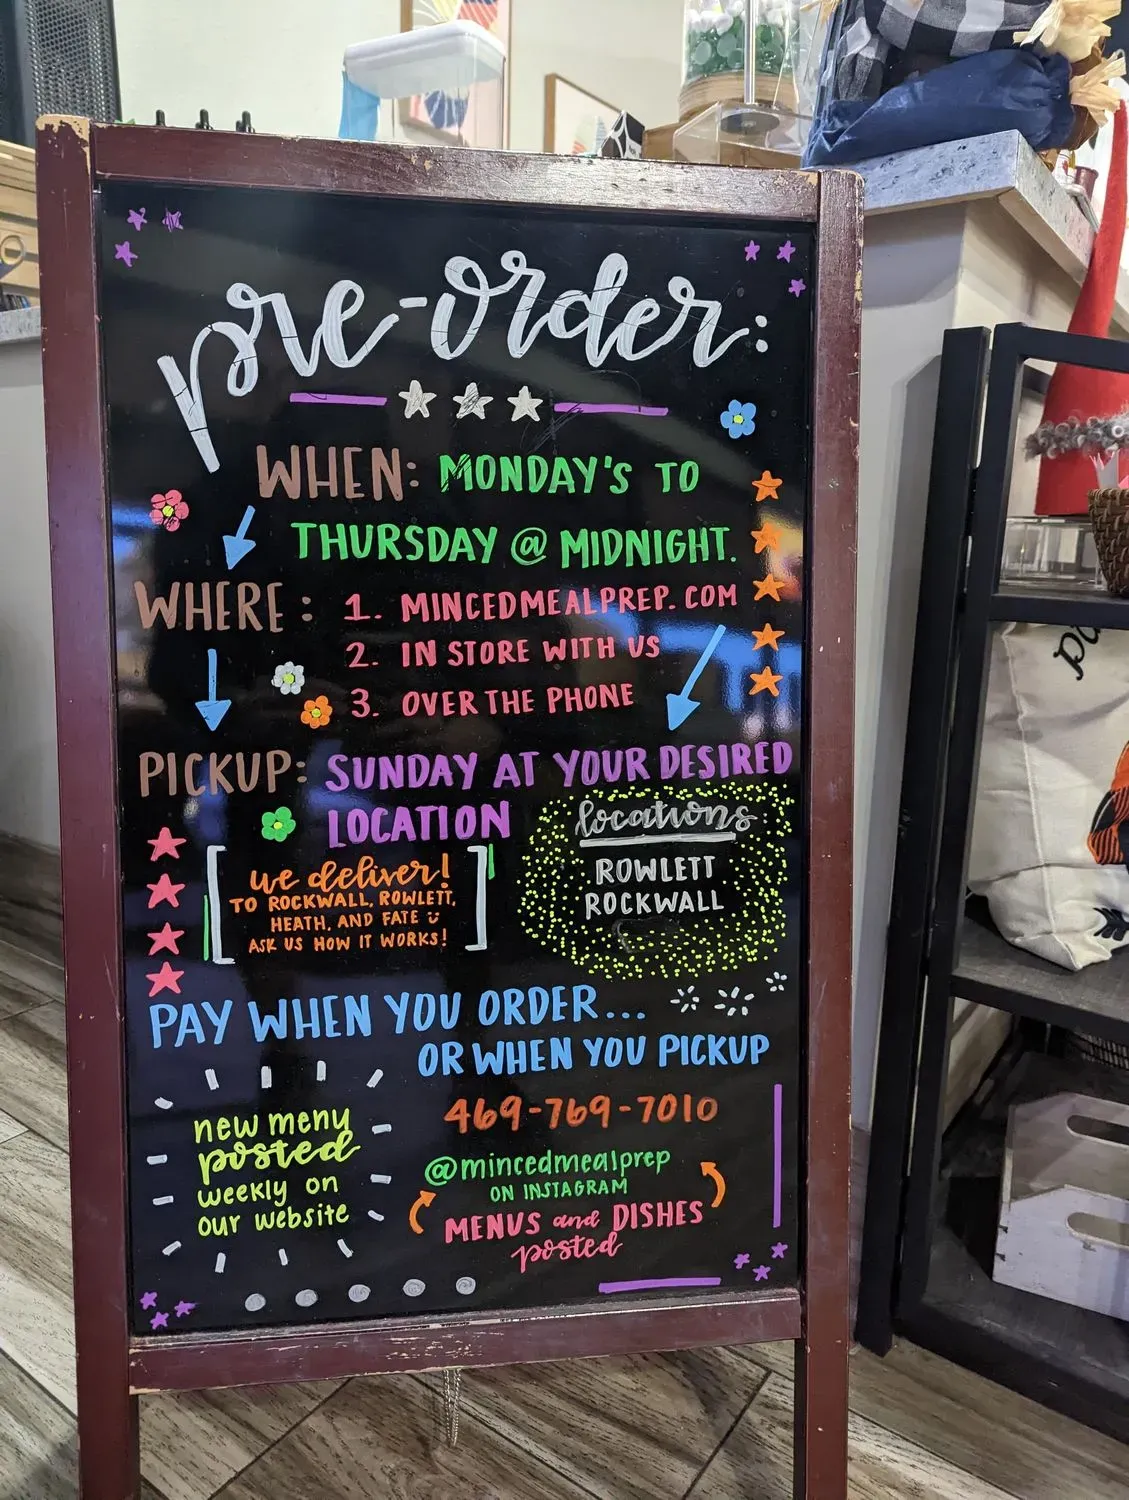 pre-order:
WHEN: MONDAY'S TO
THURSDAY @ MIDNIGHT.
WHERE: 1. MINCEDMEALPREP.COM
2. IN STORE WITH US
3. OVER THE PHONE
PICKUP: SUNDAY AT YOUR DESIRED
LOCATION
we deliver!
TO ROCKWALL, ROWLETT,
HEATH, AND FATE
ASK US HOW IT WORKS!
locations
ROWLETT
ROCKWALL
PAY WHEN YOU ORDER...
OR WHEN YOU PICKUP
new menu
posted
weekly on
our website
469-769-7010
@mincedmealprep
ON INSTAGRAM
MENUS and DISHES
posted